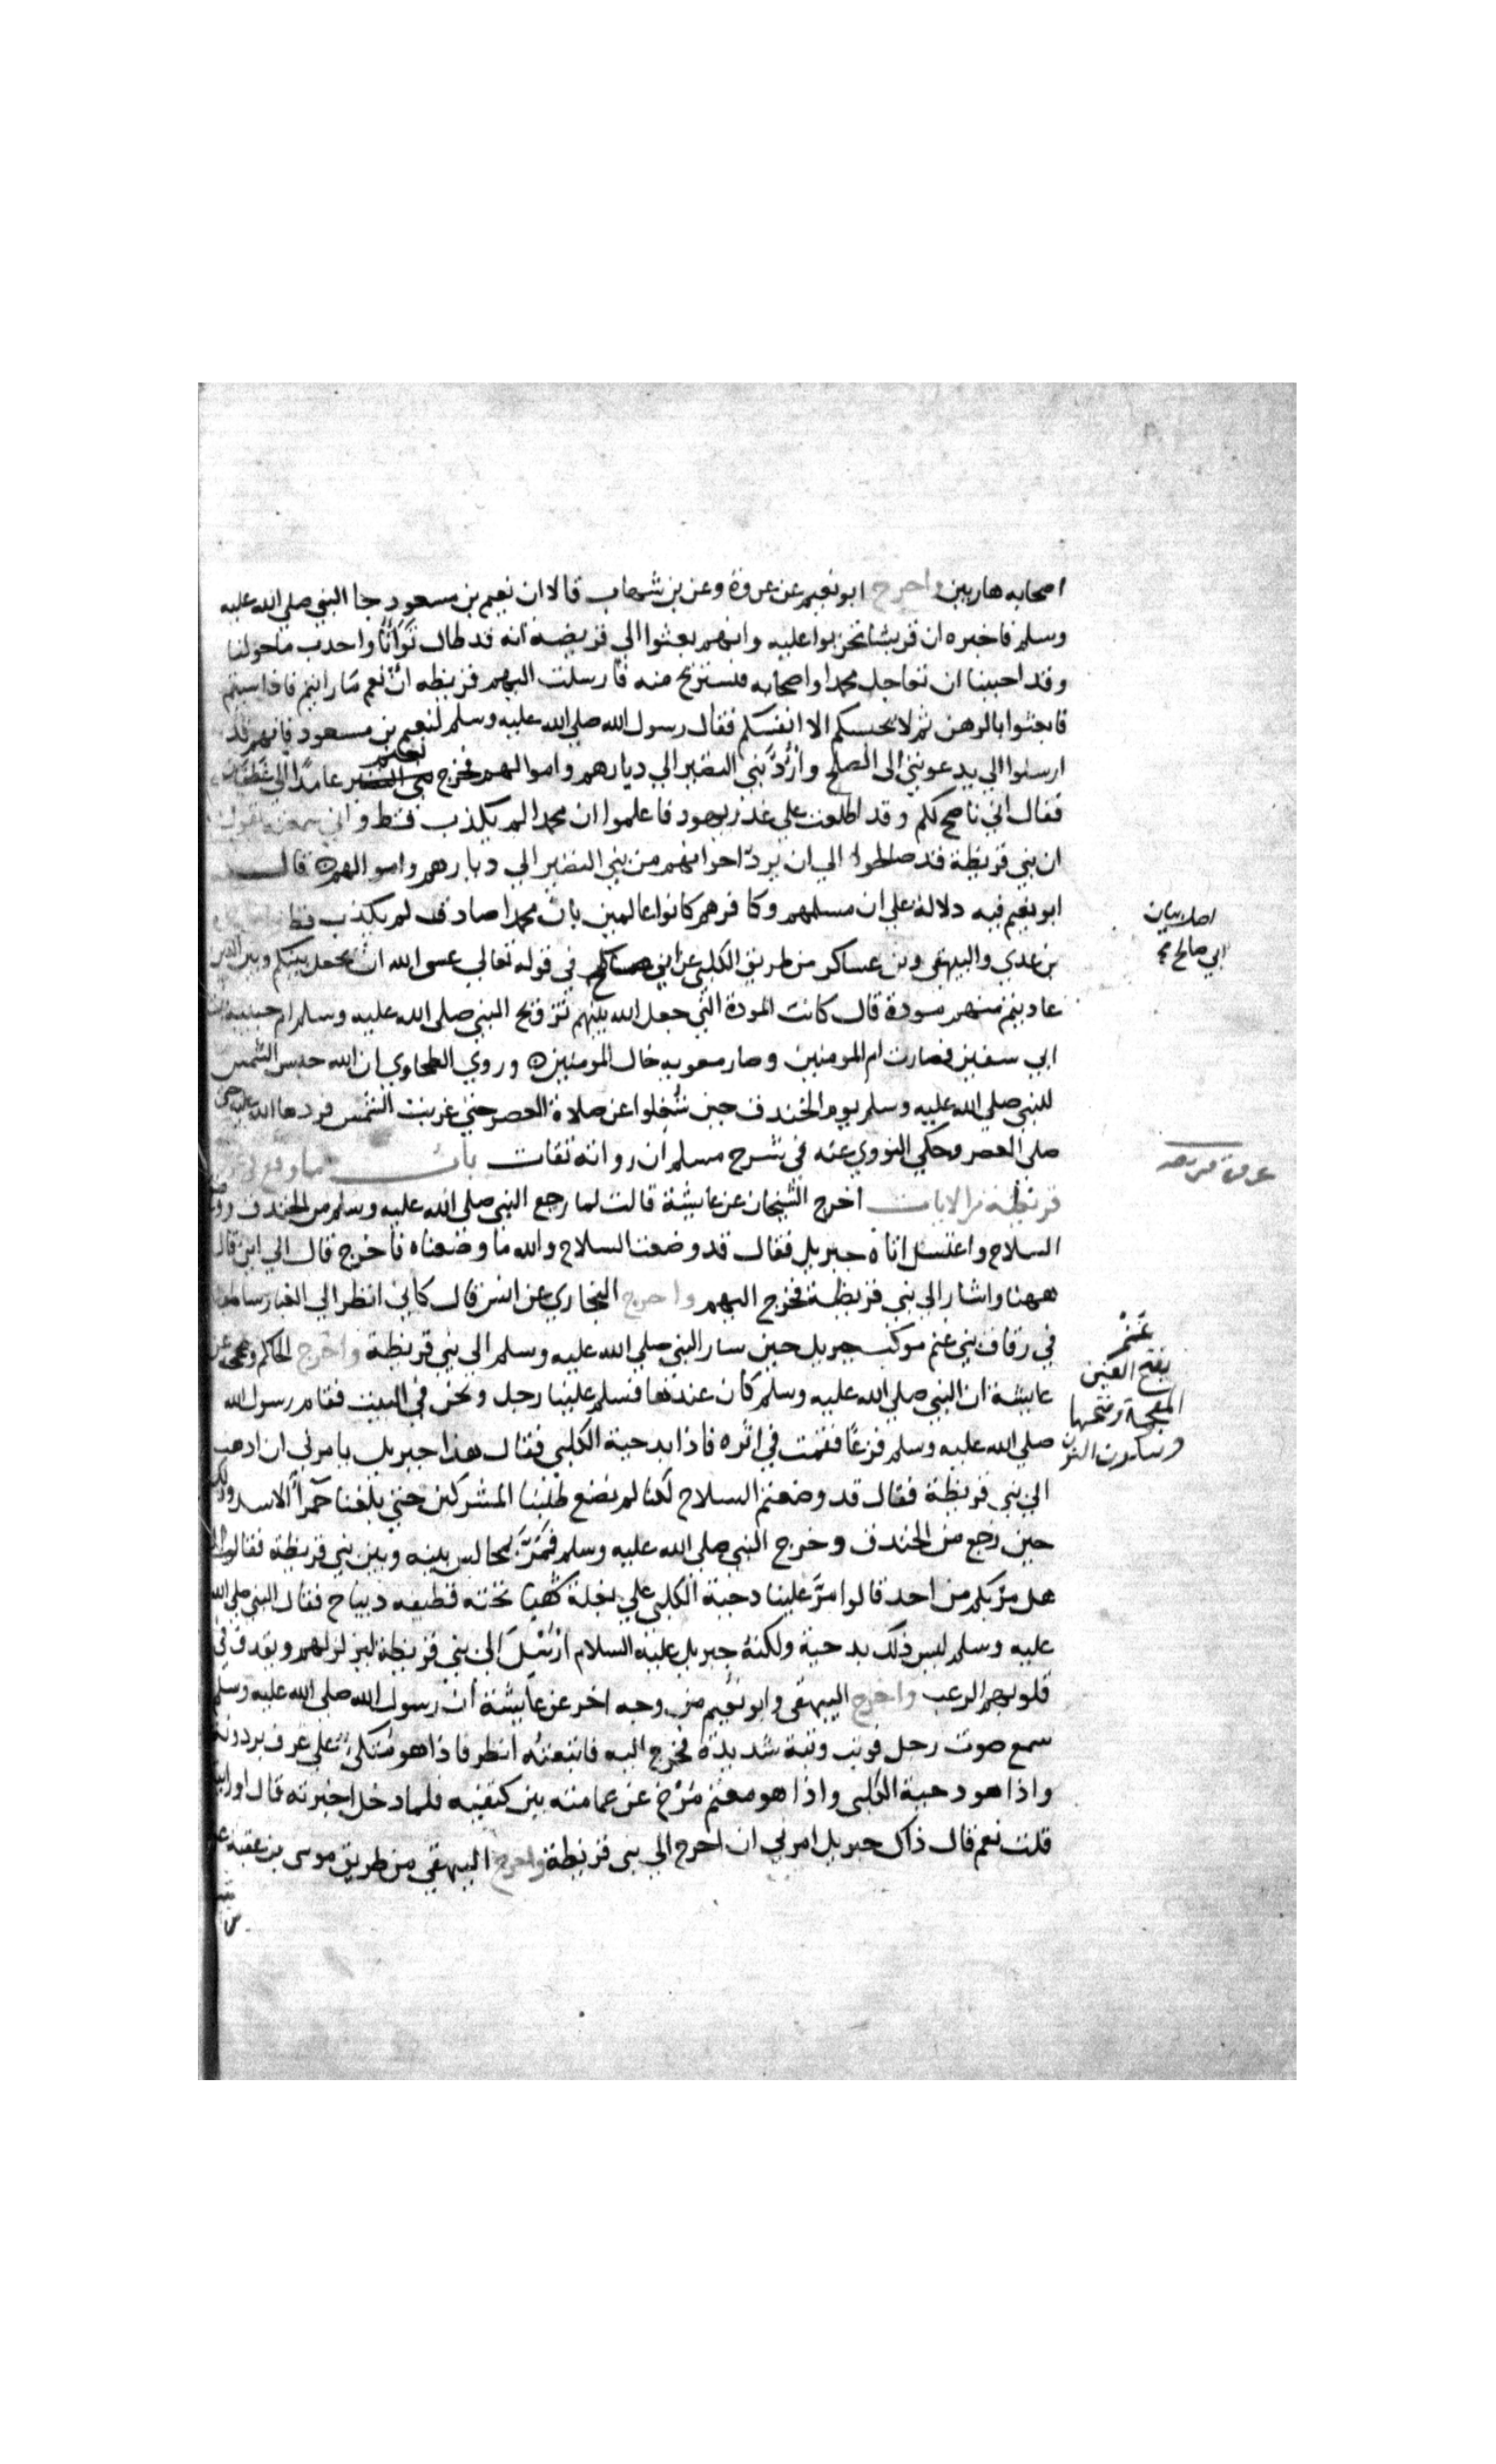 اصحابه هاربين واخرج ابو نعيم عن عروة وعن بن شهاب قالا ان نعيم بن مسعود جا النبي صلي الله عليه
وسلم فاخبره ان قريشا تحزبوا عليه وانهم بعثوا الي قريضه انه قد طال ثواؤنا واجدب ما حولنا
وقد احببنا ان نعاجل محمدا واصحابه فنستريح منه فارسلت اليهم قريظه ان نعم ما رايتم فاذا شيتم
فابعثوا بالرهن ثم لا يحبسكم الا انفسكم فقال رسول الله صلي الله عليه وسلم لنعيم بن مسعود فانهم قد
ارسلوا الي يدعونني الي الصلح وارد بني النضير الي ديارهم واموالهم فخرج نعيم عامدا الي غطفان
فقال اني ناصح لكم وقد اطلعت علي غدر يهود فاعلموا ان محمدا لم يكذب قط واني سمعته يقول
ان بني قريظة قد صالحوا الي ان يرد اخوانهم من بني النضير الي ديارهم واموالهم قال
ابو نعيم فيه دلالة علي ان مسلمهم وكافرهم كانوا عالمين بان محمدا صادق لم يكذب قط
بن عدي والبيهقي وبن عساكر من طريق الكلبي عن ابي صالح في قوله تعالي عسي الله ان يجعل بينكم وبين الذين
عاديتم منهم مودة قال كانت المودة التي جعل الله بينهم تزويج النبي صلي الله عليه وسلم ام حبيبة
ابي سفين فصارت ام المومنين وصار معويه خال المومنين وروي الطحاوي ان الله حبس الشمس
للنبي صلي الله عليه وسلم يوم الخندق حين شغلوا عن صلاة العصر حتي غربت الشمس فردها الله عليه حتي
صلي العصر وحكي النووي عنه في شرح مسلم ان رواته ثقات باب ما وقع في
قريظة من الايات اخرج الشيخان عن عايشة قالت لما رجع النبي صلي الله عليه وسلم من الخندق ووضع
السلاح واغتسل اتاه جبريل فقال قد وضعت السلاح والله ما وضعناه فاخرج قال الي اين قال
ههنا واشار الي بني قريظة فخرج اليهم واخرج البخاري عن انس قال كاني انظر الي الغبار ساطعا
في زقاق بني غنم موكب جبريل حين سار النبي صلي الله عليه وسلم الي بني قريظة واخرج الحاكم وصححه عن
عايشة ان النبي صلي الله عليه وسلم كان عندها فسلم علينا رجل ونحن في البيت فقام رسول الله
صلي الله عليه وسلم فزعا فقمت في اثره فاذا بدحية الكلبي فقال هذا جبريل يامرني ان اذهب
الي بني قريظة فقال قد وضعتم السلاح لكنا لم نضع طلبنا المشركين حتي بلغنا حمرا الاسد وذلك
حين رجع من الخندق وخرج النبي صلي الله عليه وسلم فمر بمجالس بينه وبين بني قريظة فقال
هل مر بكم من احد قالوا مر علينا دحية الكلبي علي بغلة شهبا تحته قطيفه ديباج فقال النبي صلي الله
عليه وسلم ليس ذلك بدحية ولكنه جبريل عليه السلام ارسل الي بني قريظة ليزلزلهم ويقذف في
قلوبهم الرعب واخرج البيهقي وابو نعيم من وجه اخر عن عايشة ان رسول الله صلي الله عليه وسلم
سمع صوت رجل فوثب وثبة شديدة فخرج اليه فاتبعته انظر فاذا هو متكئ علي عرف برذونه
واذا هو دحية الكلبي واذا هو معتم مرخ من عمامته بين كتفيه فلما دخل اخبرته قال اورايته
قلت نعم قال ذاك جبريل امرني ان اخرج الي بني قريظة واخرج البيهقي من طريق موسي بن عقبة عن
اصلہ بيان
ابي صالح صح
غنم
بفتح الغين
المعجمة وضمها
وسكون النون